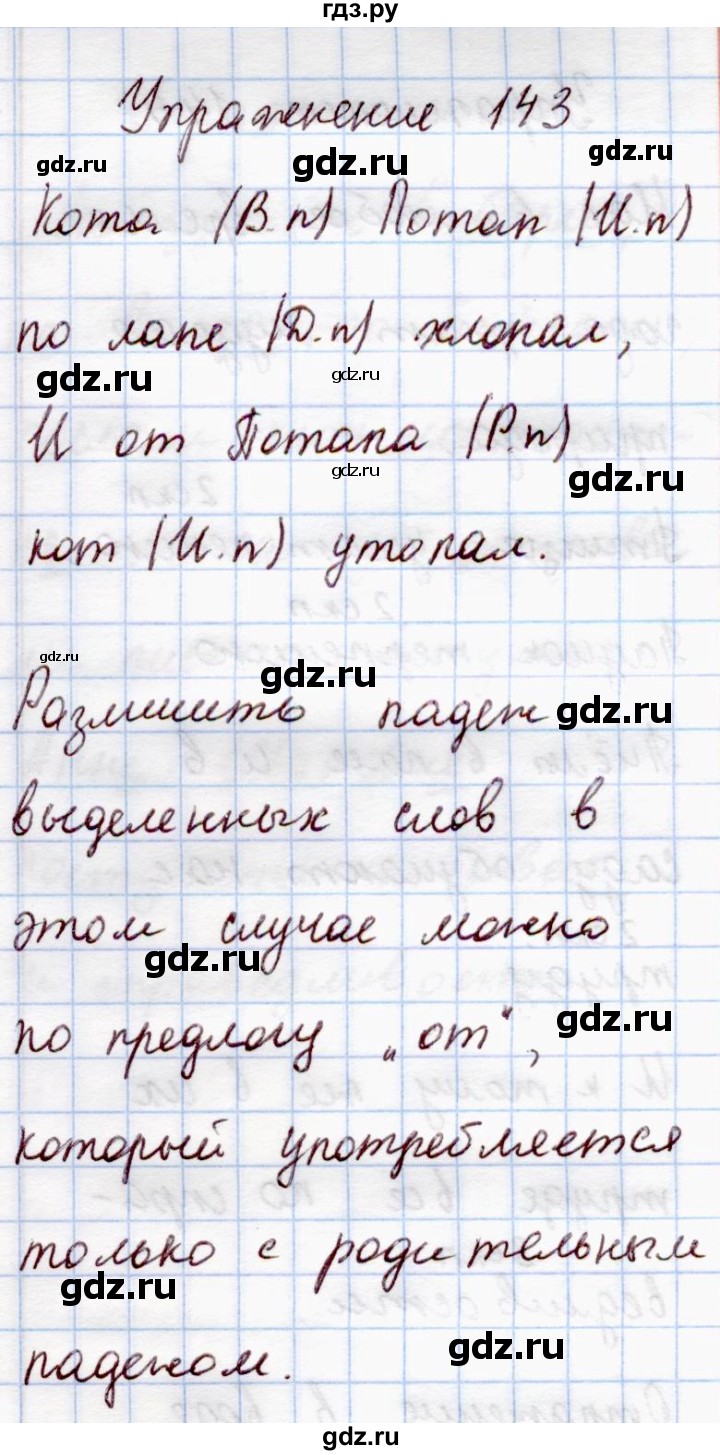 гдз.ру
Упражнение 143
gdz.ru gdz.ru gdz.ru
Кота (В.п) Потап (И.п)
по лапе (Д.п) хлопал,
gdz.ru gdz.ru
И от Потапа (Р.п)
gdz.ru gdz.ru
кот (И.п) утопал.
gdz.ru gdz.ru
Размишить падеж gdz.ru
выделенных слов в
этом случае можно
gdz.ru
по предлогу „от“, gdz.ru
который употребляется
только с родительным
gdz.ru
падежом. gdz.ru
gdz.ru